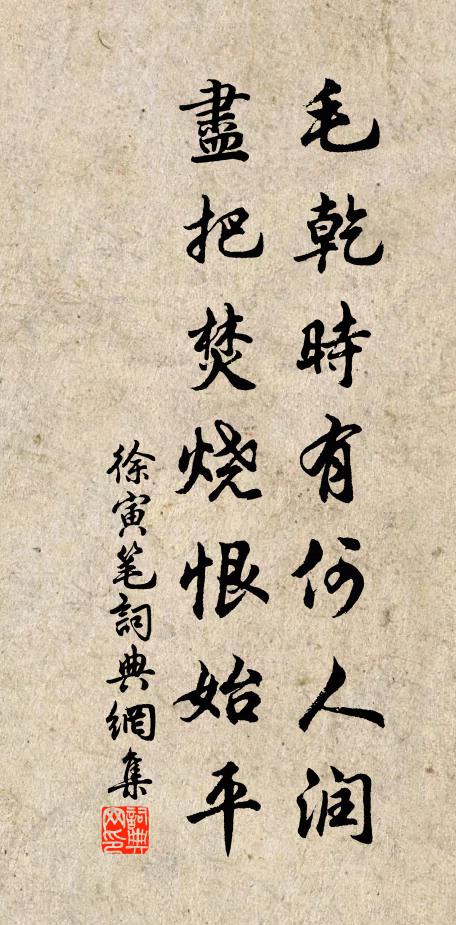 毛乾時有何人润
盡把焚烧恨始平
徐寅笔詞典網集
詞典网印